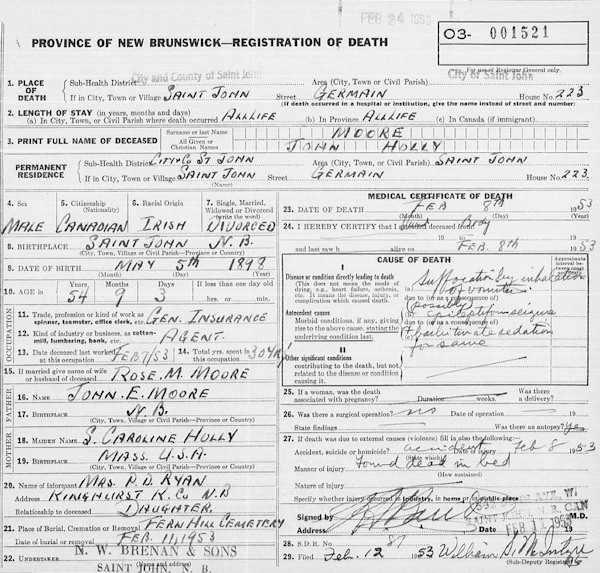 FEB 24 1953
PROVINCE OF NEW BRUNSWICK—REGISTRATION OF DEATH
03- 001521
For use of Registrar General only.
1. PLACE OF DEATH
Sub-Health District City and County of Saint John Area (City, Town or Civil Parish) City of Saint John
If in City, Town or Village SAINT JOHN Street GERMAIN House No. 223
(If death occurred in a hospital or institution, give the name instead of street and number)
2. LENGTH OF STAY (in years, months and days)
(a) In City, Town or Civil Parish where death occurred ALL LIFE (b) In Province ALL LIFE (c) In Canada (if immigrant)
3. PRINT FULL NAME OF DECEASED
Surname or last Name MOORE
All Given or Christian Names JOHN HOLLY
PERMANENT RESIDENCE
Sub-Health District CITY & CO ST JOHN Area (City, Town or Civil Parish) SAINT JOHN
If in City, Town or Village SAINT JOHN Street GERMAIN House No. 223
(Name)
4. Sex MALE
5. Citizenship (Nationality) CANADIAN
6. Racial Origin IRISH
7. Single, Married, Widowed or Divorced (write the word) DIVORCED
8. BIRTHPLACE SAINT JOHN N.B.
(City, Town, Village or Civil Parish—Province or Country)
9. DATE OF BIRTH MAY 5TH 1898
(Month) (Day) (Year)
10. AGE in Years Months Days If less than one day old
54 9 3 hrs. or min.
OCCUPATION
11. Kind of work, as spinner, teamster, office clerk, etc. GEN. INSURANCE
12. Kind of industry or business, as cotton-mill, lumbering, bank, etc. AGENT.
13. Date deceased last worked at this occupation FEB 7/53
14. Total yrs. spent in this occupation 30 YRS
15. If married give name of wife or husband of deceased ROSE. M. MOORE
FATHER
16. NAME JOHN. E. MOORE
17. BIRTHPLACE N.B.
(City, Town, Village or Civil Parish—Province or Country)
MOTHER
18. MAIDEN NAME S. CAROLINE HOLLY
19. BIRTHPLACE MASS. U.S.A.
(City, Town, Village or Civil Parish—Province or Country)
20. Name of informant MRS. P. D. RYAN
Address KINGHURST K. CO N.B
Relationship to deceased DAUGHTER.
21. Place of Burial, Cremation or Removal FERN HILL CEMETERY
Date of burial or removal FEB 11, 1953
22. UNDERTAKER N. W. BRENAN & SONS
SAINT JOHN, N. B.
MEDICAL CERTIFICATE OF DEATH
23. DATE OF DEATH FEB 8th 1953
(Month) (Day) (Year)
24. I HEREBY CERTIFY that I deceased from Body 19
and last saw h alive on FEB. 8th 1953
CAUSE OF DEATH
Approximate interval between onset and death
I
Disease or condition directly leading to death
(This does not mean the mode of dying, e.g., heart failure, asthenia, etc. It means the disease, injury, or complication which caused death.
(a) Suffocation by inhalation of vomitus
due to (or as a consequence of)
Antecedent causes
Morbid conditions, if any, giving rise to the above cause, stating the underlying condition last.
(b) Possibly epileptic seizure
due to (or as a consequence of)
(c) & barbiturate sedation for same
II
Other significant conditions
contributing to the death, but not related to the disease or condition causing it.
25. If a woman, was the death associated with pregnancy? Duration weeks. Was there a delivery?
26. Was there a surgical operation? no Date of operation 19
State findings Was there an autopsy? Yes
27. If death was due to external causes (violence) fill in also the following:
Accident, suicide or homicide? accident Date of injury Feb 8 1953
Manner of injury found dead in bed
(How sustained)
Nature of injury
Specify whether injury occurred in industry, in home or in public place
Signed by M.D.
SAINT JOHN, N. B. CAN
Address Date FEB 11 1953
28. S.D.R. No. 87
29. Filed Feb. 12 1953 William B. McIntyre
(Sub-Deputy Registrar)